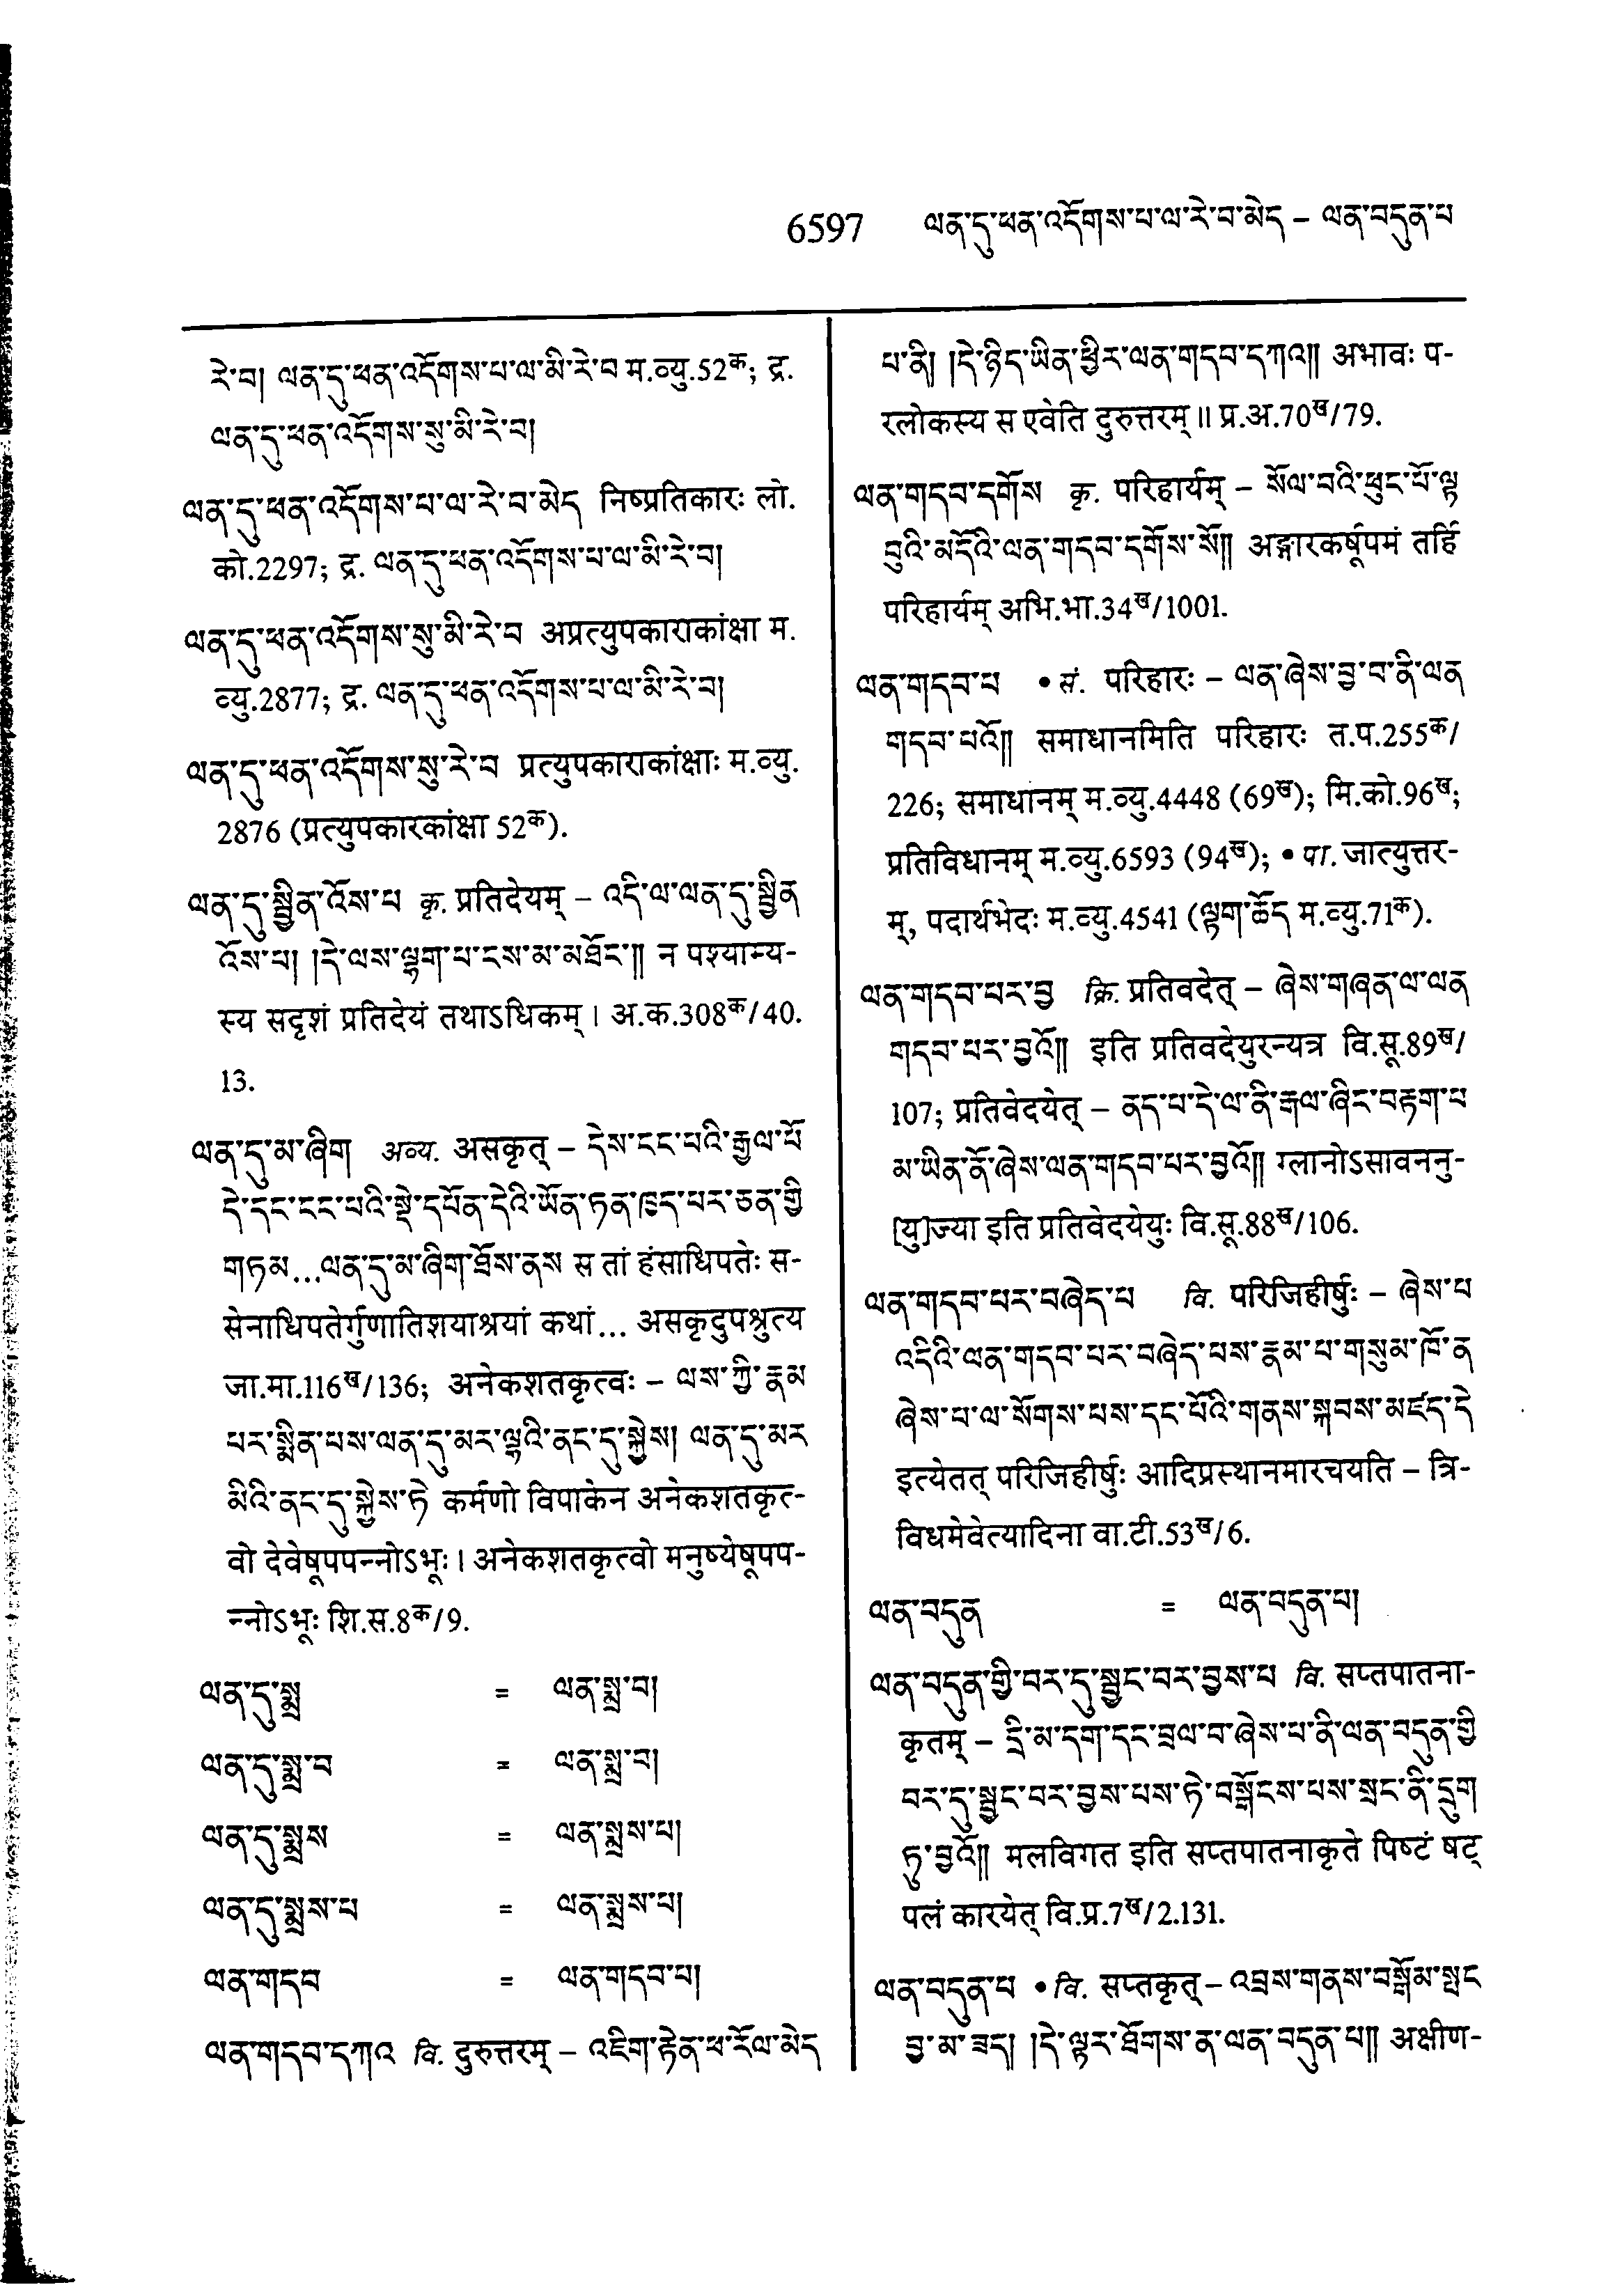 6597 ལན་དུ་ཕན་འདོགས་པ་ལ་རེ་བ་མེད – ལན་བདུན་པ
རེ་བ། ལན་དུ་ཕན་འདོགས་པ་ལ་མི་རེ་བ म.व्यु.52क; द्र.
ལན་དུ་ཕན་འདོགས་སུ་མི་རེ་བ།
ལན་དུ་ཕན་འདོགས་པ་ལ་རེ་བ་མེད निष्प्रतिकारः लो.
को.2297; द्र. ལན་དུ་ཕན་འདོགས་པ་ལ་མི་རེ་བ།
ལན་དུ་ཕན་འདོགས་སུ་མི་རེ་བ अप्रत्युपकाराकांक्षा म.
व्यु.2877; द्र. ལན་དུ་ཕན་འདོགས་པ་ལ་མི་རེ་བ།
ལན་དུ་ཕན་འདོགས་སུ་རེ་བ प्रत्युपकाराकांक्षाः म.व्यु.
2876 (प्रत्युपकारकांक्षा 52क).
ལན་དུ་སྦྱིན་འོས་པ कृ. प्रतिदेयम् – འདི་ལ་ལན་དུ་སྦྱིན
འོས་པ། །དེ་ལས་ལྷག་པ་ངས་མ་མཐོང་༎ न पश्याम्य-
स्य सदृशं प्रतिदेयं तथाऽधिकम् । अ.क.308क/40.
13.
ལན་དུ་མ་ཞིག अव्य. असकृत् – དེས་ངང་པའི་རྒྱལ་པོ
དེ་དང་ངང་པའི་སྡེ་དཔོན་དེའི་ཡོན་ཏན་ཁྱད་པར་ཅན་གྱི
གཏམ...ལན་དུ་མ་ཞིག་ཐོས་ནས स तां हंसाधिपतेः स-
सेनाधिपतेर्गुणातिशयाश्रयां कथां... असकृदुपश्रुत्य
जा.मा.116ख/136; अनेकशतकृत्वः – ལས་ཀྱི་རྣམ
པར་སྨིན་པས་ལན་དུ་མར་ལྷའི་ནང་དུ་སྐྱེས། ལན་དུ་མར
མིའི་ནང་དུ་སྐྱེས་ཏེ कर्मणो विपाकेन अनेकशतकृत-
वो देवेषूपपन्नोऽभूः । अनेकशतकृत्वो मनुष्येषूपप-
न्नोऽभूः शि.स.8क/9.
ལན་དུ་སྨྲ = ལན་སྨྲ་བ།
ལན་དུ་སྨྲ་བ = ལན་སྨྲ་བ།
ལན་དུ་སྨྲས = ལན་སྨྲས་པ།
ལན་དུ་སྨྲས་པ = ལན་སྨྲས་པ།
ལན་གདབ = ལན་གདབ་པ།
ལན་གདབ་དཀའ वि. दुरुत्तरम् – འཇིག་རྟེན་ཕ་རོལ་མེད
པ་ནི། །དེ་ཉིད་ཡིན་ཕྱིར་ལན་གདབ་དཀའ༎ अभावः प-
रलोकस्य स एवेति दुरुत्तरम् ॥ प्र.अ.70ख/79.
ལན་གདབ་དགོས कृ. परिहार्यम् – སོལ་བའི་ཕུང་པོ་ལྟ
བུའི་མདོའི་ལན་གདབ་དགོས་སོ༎ अङ्गारकर्षूपमं तर्हि
परिहार्यम् अभि.भा.34ख/1001.
ལན་གདབ་པ • सं. परिहारः – ལན་ཞེས་བྱ་བ་ནི་ལན
གདབ་པའོ༎ समाधानमिति परिहारः त.प.255क/
226; समाधानम् म.व्यु.4448 (69ख); मि.को.96ख;
प्रतिविधानम् म.व्यु.6593 (94ख); • पा. जात्युत्तर-
म्, पदार्थभेदः म.व्यु.4541 (ལྟག་ཆོད म.व्यु.71क).
ལན་གདབ་པར་བྱ क्रि. प्रतिवदेत् – ཞེས་གཞན་ལ་ལན
གདབ་པར་བྱའོ༎ इति प्रतिवदेयुरन्यत्र वि.सू.89ख/
107; प्रतिवेदयेत् – ནད་པ་དེ་ལ་ནི་རྒལ་ཞིང་བརྟག་པ
མ་ཡིན་ནོ་ཞེས་ལན་གདབ་པར་བྱའོ༎ ग्लानोऽसावननु-
[यु]ज्या इति प्रतिवेदयेयुः वि.सू.88ख/106.
ལན་གདབ་པར་བཞེད་པ वि. परिजिहीर्षुः – ཞེས་པ
འདིའི་ལན་གདབ་པར་བཞེད་པས་རྣམ་པ་གསུམ་ཁོ་ན
ཞེས་པ་ལ་སོགས་པས་དང་པོའི་གནས་སྐབས་མཛད་དེ
इत्येतत् परिजिहीर्षुः आदिप्रस्थानमारचयति – त्रि-
विधमेवेत्यादिना वा.टी.53ख/6.
ལན་བདུན = ལན་བདུན་པ།
ལན་བདུན་གྱི་བར་དུ་སྦྱང་བར་བྱས་པ वि. सप्तपातना-
कृतम् – དྲི་མ་དག་དང་བྲལ་བ་ཞེས་པ་ནི་ལན་བདུན་གྱི
བར་དུ་སྦྱང་བར་བྱས་པས་ཏེ་བསྒོངས་པས་སྲང་ནི་དྲུག
ཏུ་བྱའོ༎ मलविगत इति सप्तपातनाकृते पिष्टं षट्
पलं कारयेत् वि.प्र.7ख/2.131.
ལན་བདུན་པ • वि. सप्तकृत् – འབྲས་གནས་བསྒོམ་སྤང
བྱ་མ་ཟད། །དེ་ལྟར་ཐོགས་ན་ལན་བདུན་པ༎ अक्षीण-